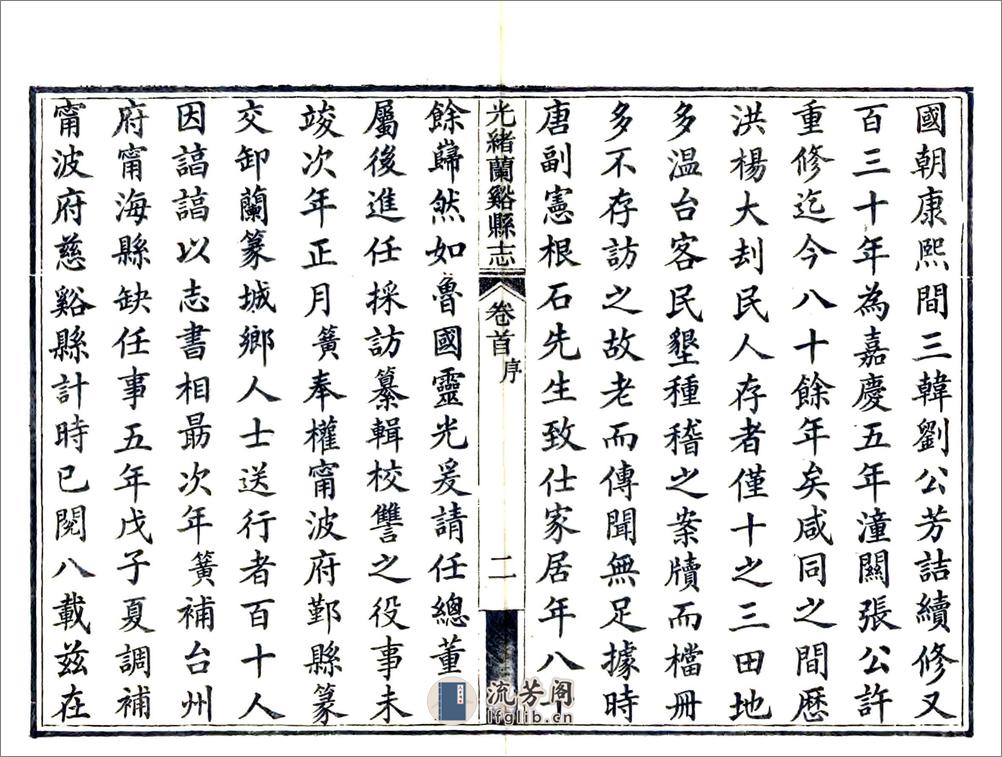 國朝康熙間三韓劉公芳詰續修又
百三十年為嘉慶五年潼關張公許
重修迄今八十餘年矣咸同之間歷
洪楊大刦民人存者僅十之三田地
多温台客民墾種稽之案牘而檔冊
多不存訪之故老而傳聞無足據時
唐副憲根石先生致仕家居年八十
光緒蘭谿縣志
卷首
序
二
餘巋然如魯國靈光爰請任總董
屬後進任採訪纂輯校讐之役事未
竣次年正月簧奉權甯波府鄞縣篆
交卸蘭篆城鄉人士送行者百十人
因諄諄以志書相勗次年簧補台州
府甯海縣缺任事五年戊子夏調補
甯波府慈谿縣計時已閱八載茲在
流芳阁
lfglib.cn